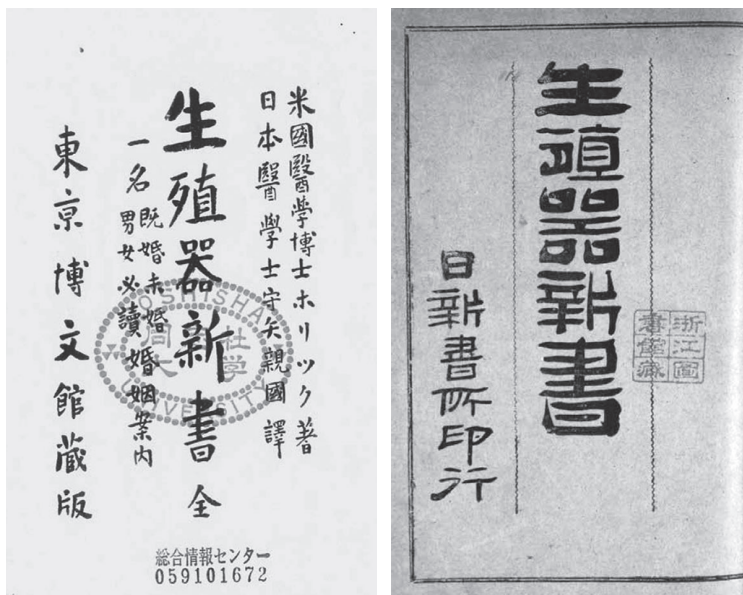 米國醫學博士ホリック著
日本醫學士守矢親國譯
生殖器新書全
一名既婚未婚男女必讀婚姻案内
東京博文館藏版
DOSHISHA
UNIVERSITY
同志社大学
総合情報センター
059101672
生殖器新書
日新書所印行
浙江圖
書館藏